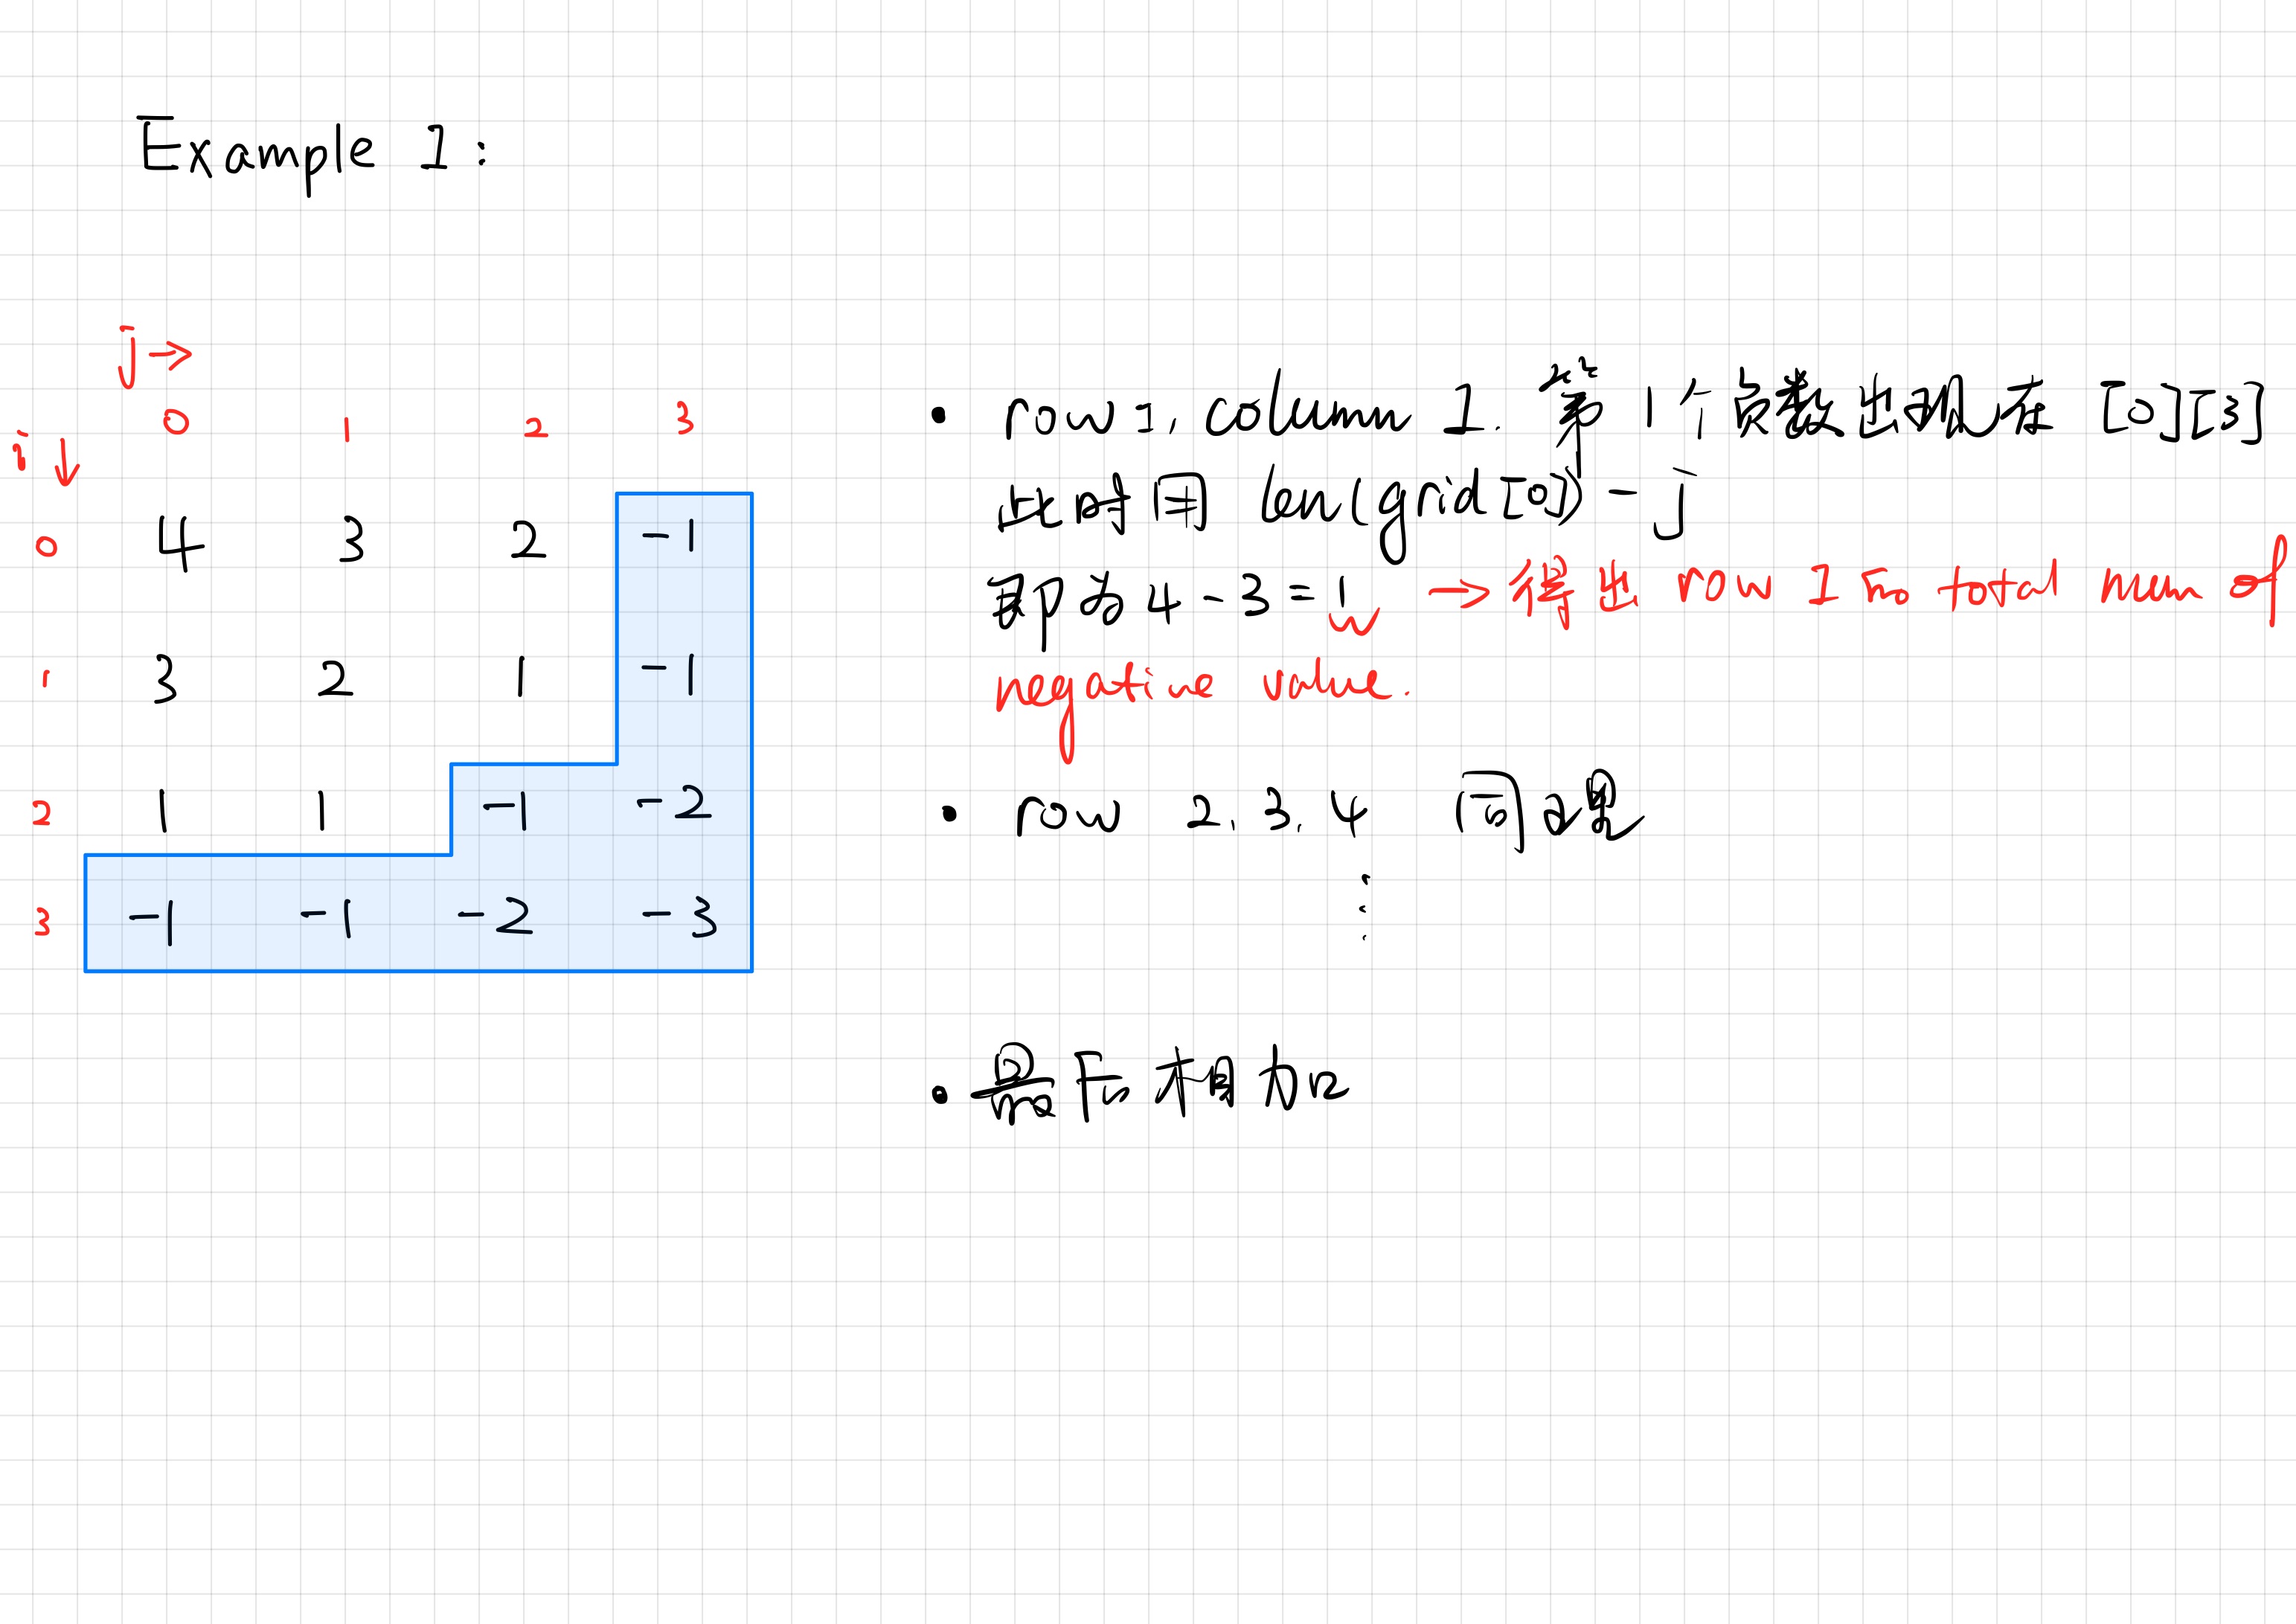 Example 1:
j →
0 1 2 3
i ↓
0 4 3 2 -1
1 3 2 1 -1
2 1 1 -1 -2
3 -1 -1 -2 -3
• row 1, column 1. 第1个负数出现在 [0][3]
此时用 len(grid[0]) - j
即为 4 - 3 = 1 → 得出 row 1 的 total num of
negative value.
• row 2, 3, 4 同理
⋮
• 最后相加